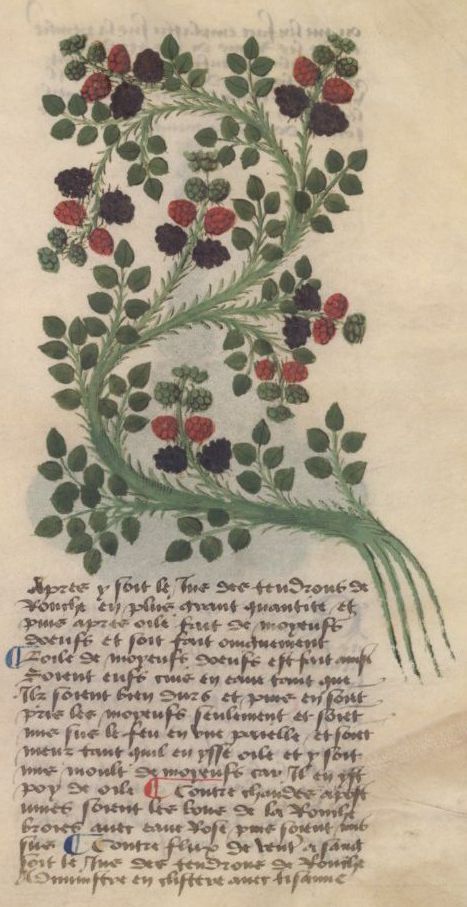 Apres y soit le Jus des tendrons de
Ronche en plus grant quantite et
puis apres oile fait de moyeufs
doeufs et soit fait oingnement
Loile de moyeufs doeufs est fait ainsi
Soient eufs cuis en eaue tant que
Ilz soient bien durs et puis en soit
pris les moyeufs seulement et soiet
mis sus le feu en une paielle et soiet
meuz tant quil en ysse oile et y soit
mis moult de moyeufs car Il en yst
poy de oile Contre chaudes apost
umes soient les de la Ronche
broies auec eaue Rose puis soient mis
sus Contre flux de vent a sang
soit le Jus des tendrons de Ronche
Aministre en clistere auec tisanne